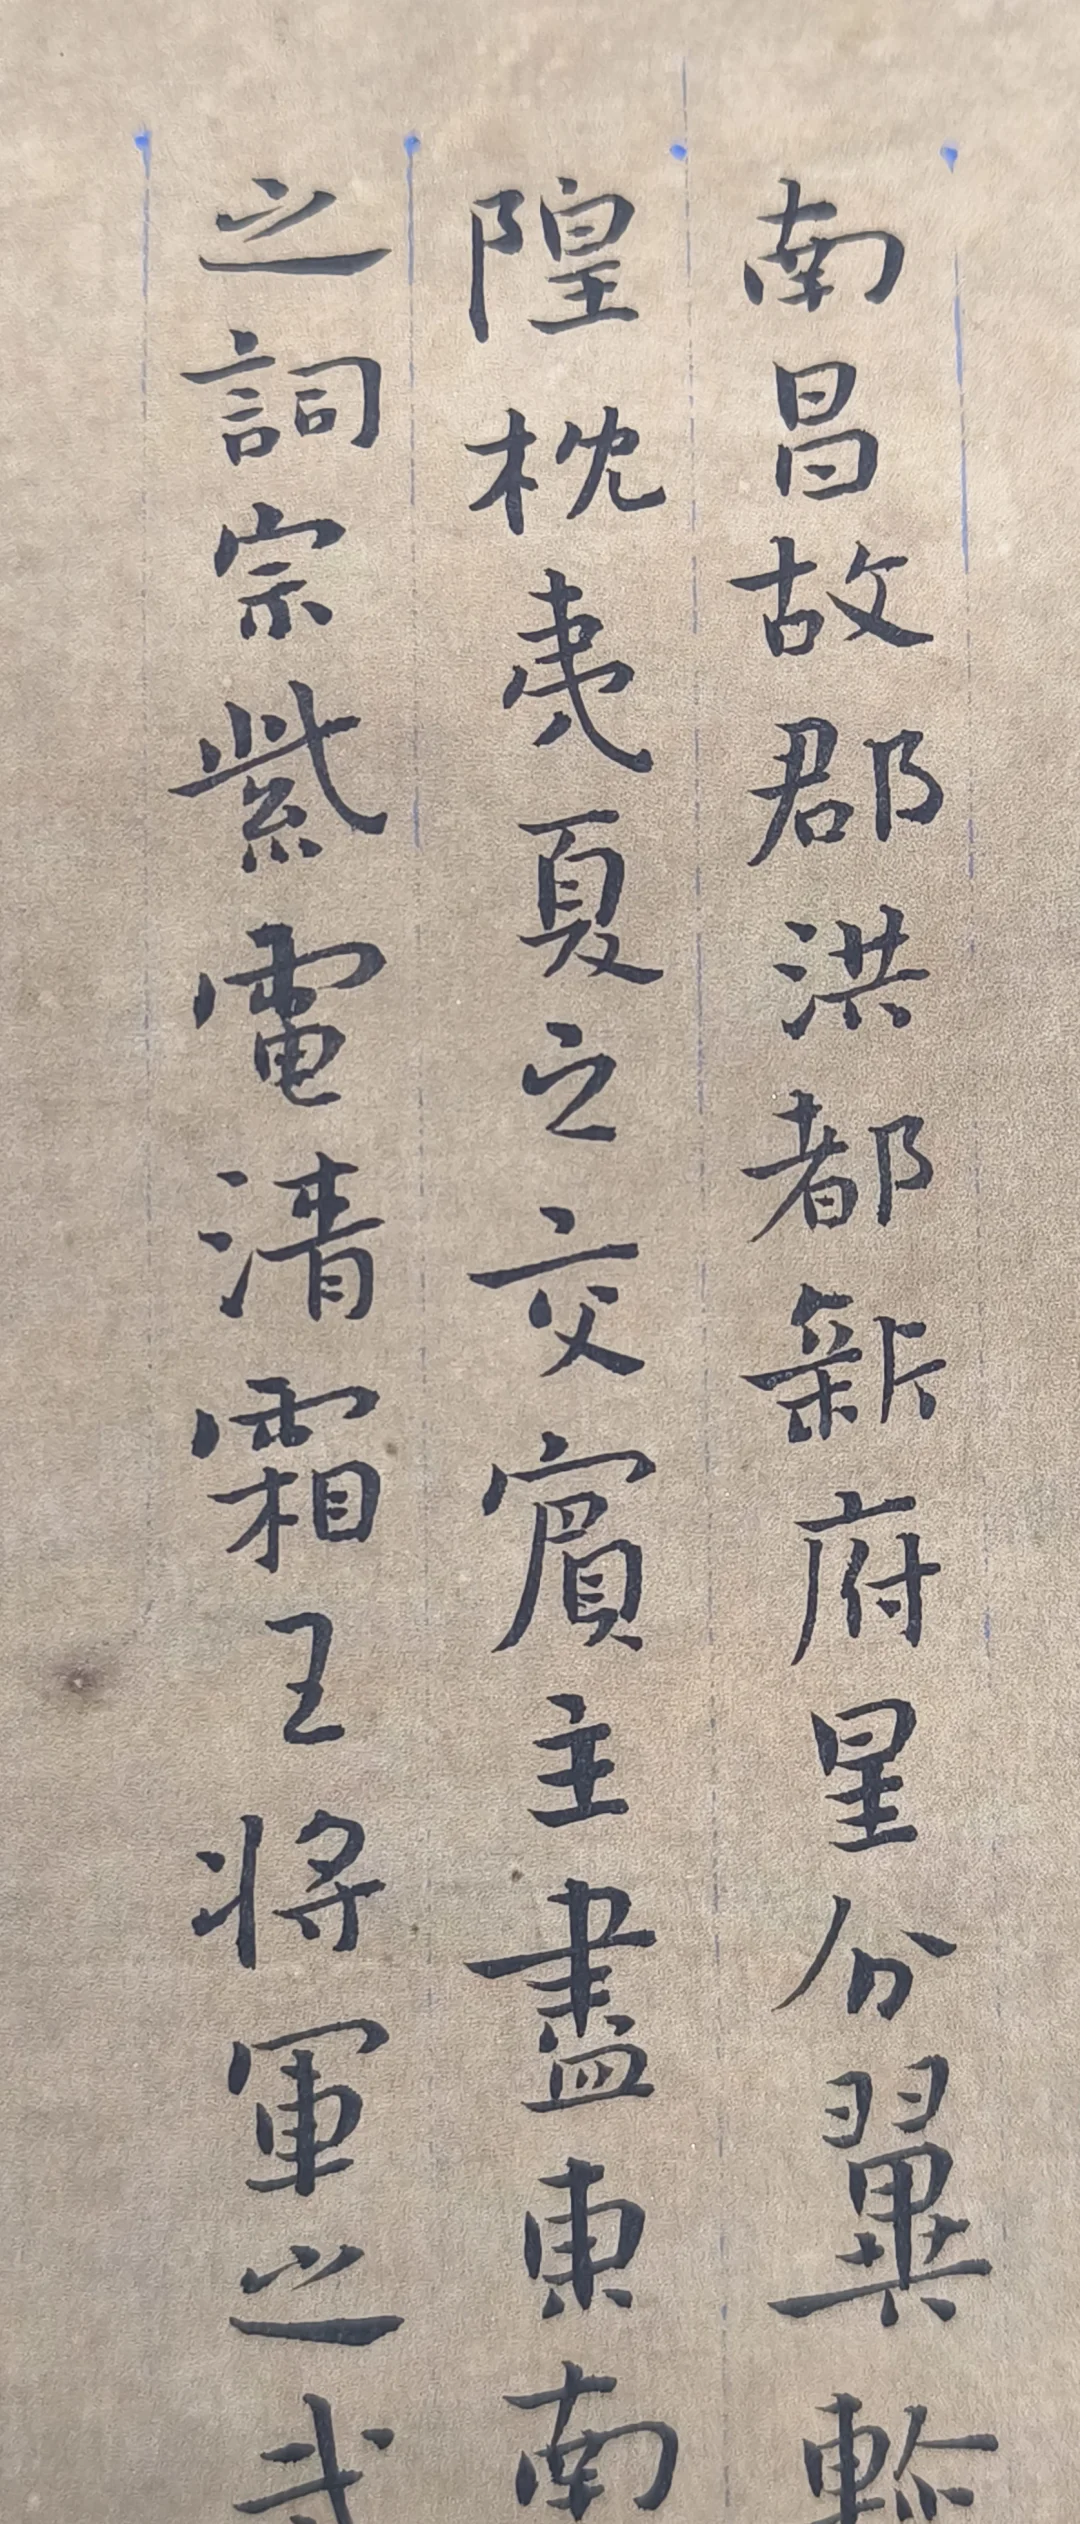 南昌故郡洪都新府星分翼軫
隍枕夷夏之交賓主盡東南
之詞宗紫電清霜王將軍之武